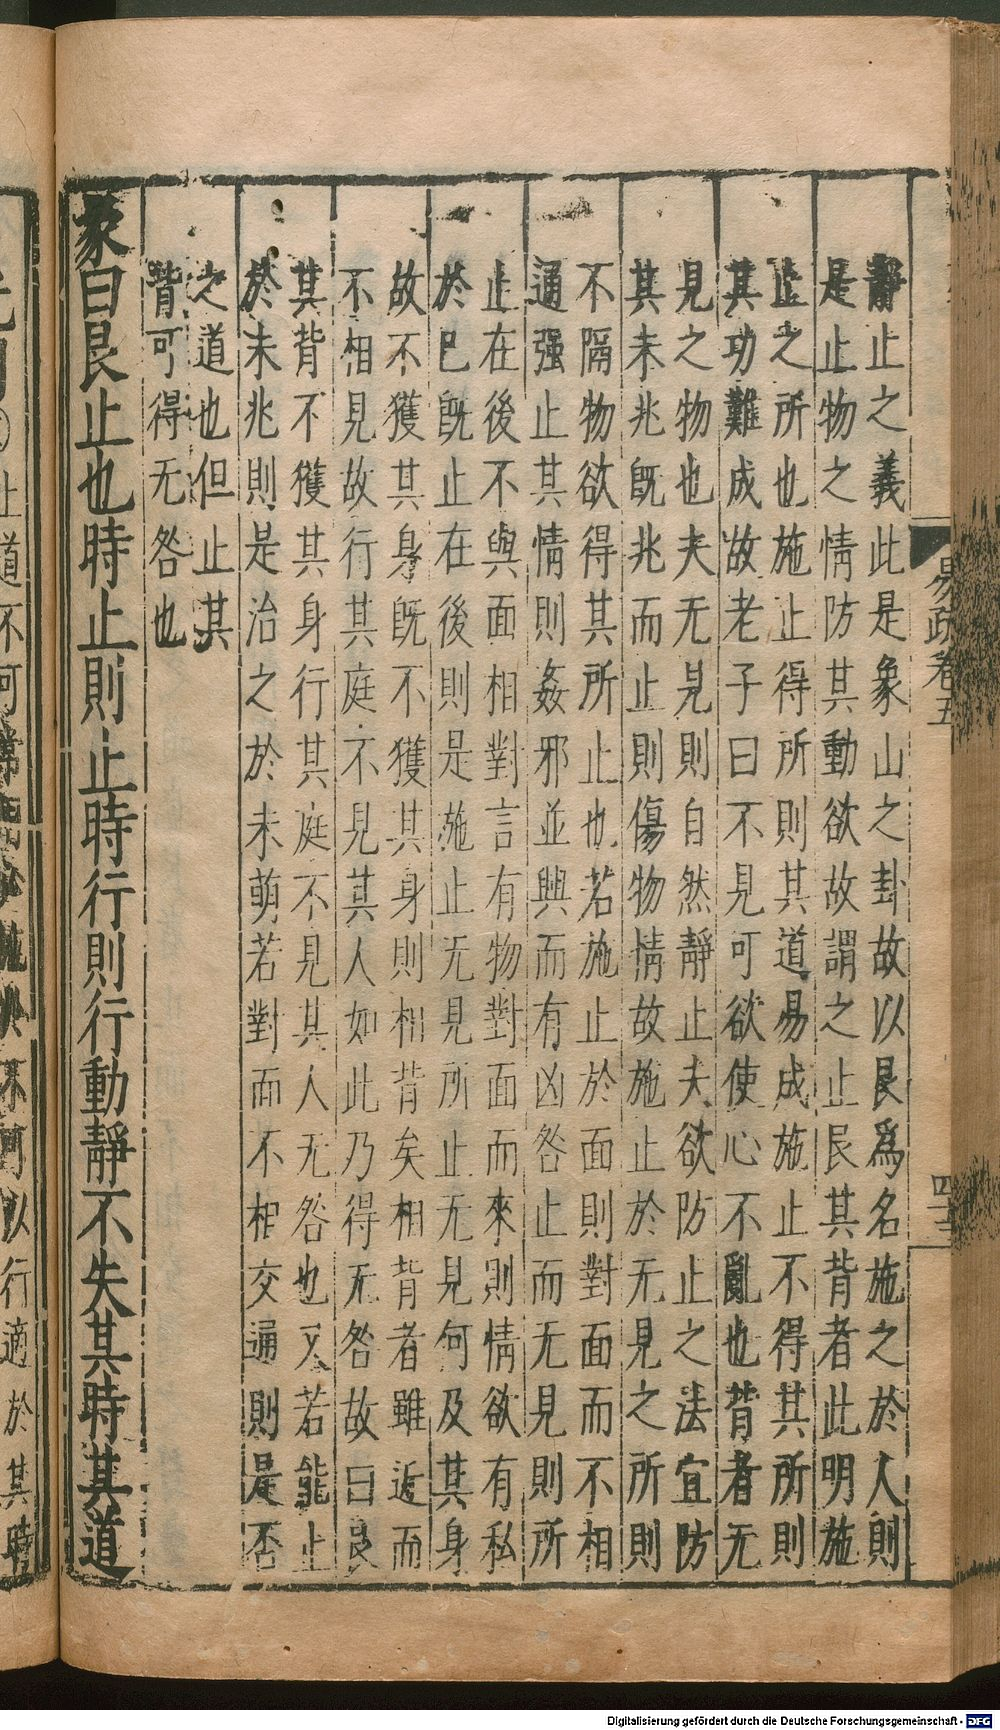 靜止之義此是象山之卦故以艮爲名施之於人則
是止物之情防其動欲故謂之止艮其背者此明施
止之所也施止得所則其道易成施止不得其所則
其功難成故老子曰不見可欲使心不亂也背者无
見之物也夫无見則自然靜止夫欲防止之法宜防
其未兆旣兆而止則傷物情故施止於无見之所則
不隔物欲得其所止也若施止於面則對面而不相
通强止其情則姦邪並興而有凶咎止而无見則所
止在後不與面相對言有物對面而來則情欲有私
於己旣止在後則是施止无見所止无見何及其身
故不獲其身旣不獲其身則相背矣相背者雖近而
不相見故行其庭不見其人如此乃得无咎故曰艮
其背不獲其身行其庭不見其人无咎也又若能止
於未兆則是治之於未萌若對而不相交通則是否
之道也但止其
背可得无咎也
彖曰艮止也時止則止時行則行動靜不失其時其道
易疏卷五
止道不可
不可以行適於其時
Digitalisierung gefördert durch die Deutsche Forschungsgemeinschaft - DFG